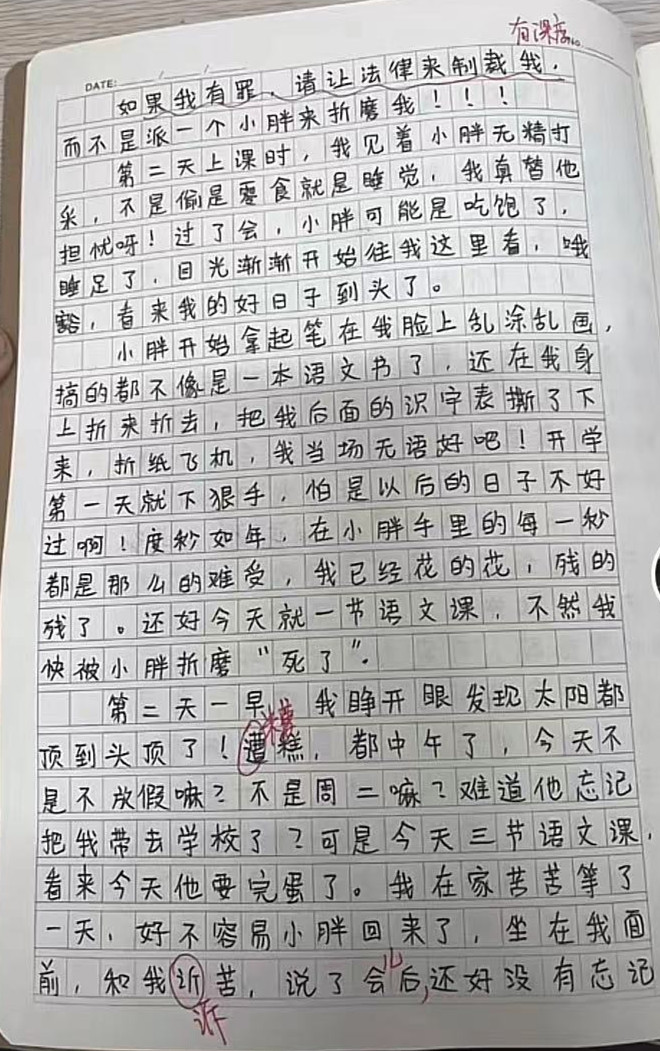 有深度
DATE: / /
NO.
如果我有罪，请让法律来制裁我，
而不是派一个小胖来折磨我！！！
第二天上课时，我见着小胖无精打
采，不是偷是零食就是睡觉，我真替他
担忧呀！过了会，小胖可能是吃饱了，
睡足了，目光渐渐开始往我这里看，哦
豁，看来我的好日子到头了。
小胖开始拿起笔在我脸上乱涂乱画，
搞的都不像是一本语文书了，还在我身
上折来折去，把我后面的识字表撕了下
来，折纸飞机，我当场无语好吧！开学
第一天就下狠手，怕是以后的日子不好
过啊！度秒如年，在小胖手里的每一秒
都是那么的难受，我已经花的花，残的
残了。还好今天就一节语文课，不然我
快被小胖折磨“死了”。
第二天一早，我睁开眼发现太阳都
糟
顶到头顶了！遭糕，都中午了，今天不
是不放假嘛？不是周二嘛？难道他忘记
把我带去学校了？可是今天三节语文课，
看来今天他要完蛋了。我在家苦苦等了
一天，好不容易小胖回来了，坐在我面
前，和我䜣苦，说了会儿后，还好没有忘记
诉